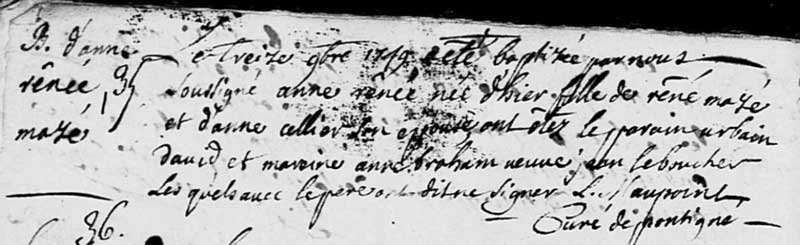 B. d'anne
rênéé 35
mazé
Le treize 9bre 1719 a eté baptizée par nous
soussigné anne rênéé néé d'hier fille de rêné mazé
et d'anne cellier son epouse ont êtez le parain urbain
david et maraine anne braham veuve jean leboucher
les quels avec le pere ont dit ne signer
Curé de pontigne
36.